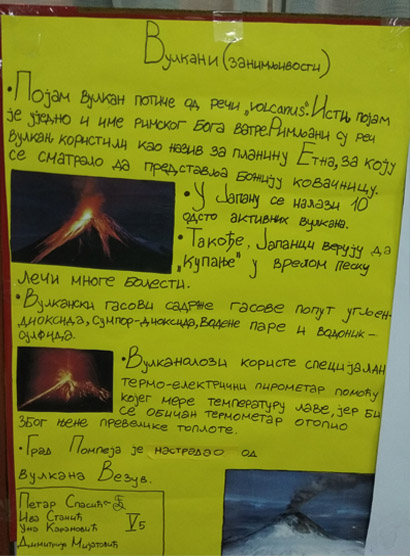 Вулкани (занимљивости)
• Појам вулкан потиче од речи „volcanus". Исти појам
је уједно и име римског Бога ватре. Римљани су реч
вулкан користили као назив за планину Етна, за коју
се сматрало да представља Божију ковачницу.
• У Јапану се налази 10
одсто активних вулкана.
• Такође, Јапанци верују да
„купање" у врелом песку
лечи многе болести.
• Вулкански гасови садрже гасове попут угљен-
диоксида, сумпор-диоксида, водене паре и водоник-
сулфида.
• Вулканолози користе специјалан
термо-електрични пирометар помоћу
којег мере температуру лаве, јер би
се обичан термометар отопио
због њене превелике топлоте.
• Град Помпеја је настрадао од
вулкана Везув.
Петар Спасић
Ива Станић
Уна Карановић V5
Димитрије Мијатовић